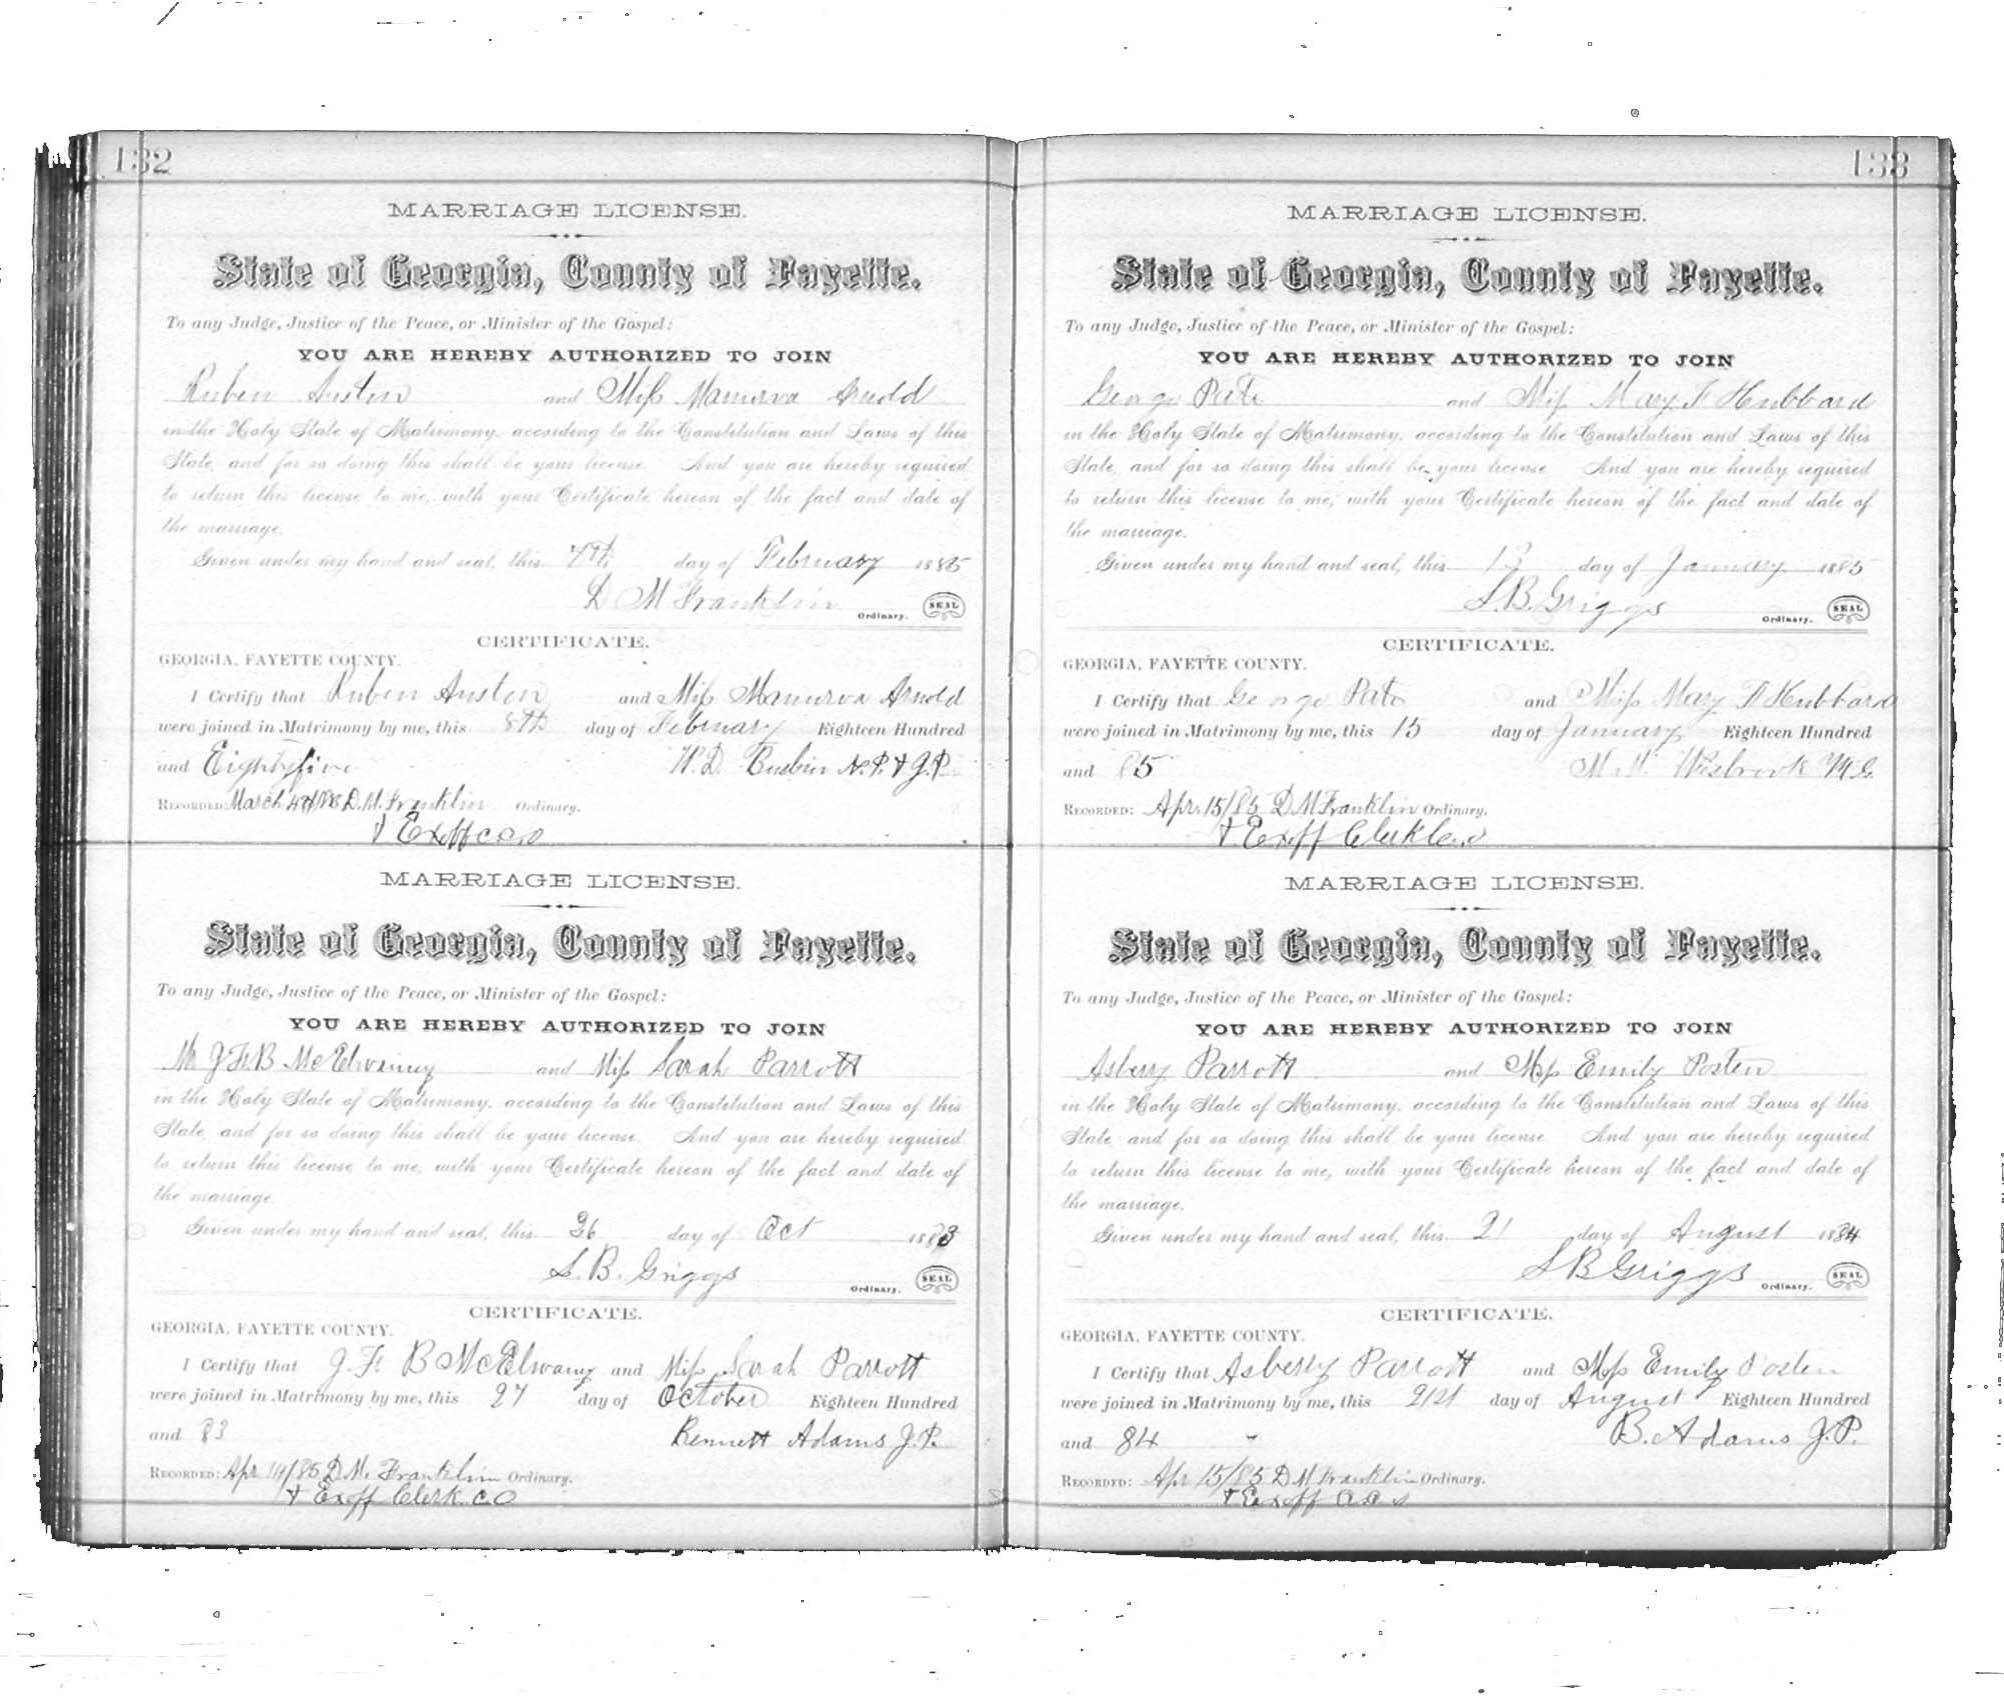 132
MARRIAGE LICENSE.
State of Georgia, County of Fayette.
To any Judge, Justice of the Peace, or Minister of the Gospel:
YOU ARE HEREBY AUTHORIZED TO JOIN
Ruben Austin and Miss Manurva
in the Holy State of Matrimony, according to the Constitution and Laws of this
State, and for so doing this shall be your license. And you are hereby required
to return this license to me, with your Certificate hereon of the fact and date of
the marriage.
Given under my hand and seal, this 7th day of February 1885
D M Franklin
Ordinary. SEAL
CERTIFICATE.
GEORGIA, FAYETTE COUNTY.
I Certify that Ruben Austin and Miss Manurva Arnold
were joined in Matrimony by me, this 8th day of February Eighteen Hundred
and Eighty five W. D. Busbin N.P. & J.P.
RECORDED: March D. M. Franklin Ordinary.
& Exoff C.C.O
MARRIAGE LICENSE.
State of Georgia, County of Fayette.
To any Judge, Justice of the Peace, or Minister of the Gospel:
YOU ARE HEREBY AUTHORIZED TO JOIN
Mr J F B McElwaney and Miss Sarah Parrott
in the Holy State of Matrimony, according to the Constitution and Laws of this
State, and for so doing this shall be your license. And you are hereby required
to return this license to me, with your Certificate hereon of the fact and date of
the marriage.
Given under my hand and seal, this 26 day of Oct 1883
S. B. Griggs
Ordinary. SEAL
CERTIFICATE.
GEORGIA, FAYETTE COUNTY.
I Certify that J. F. B McElwany and Miss Sarah Parrott
were joined in Matrimony by me, this 27 day of October Eighteen Hundred
and 83 Bennett Adams J.P.
RECORDED: Apr 14/85 D. M. Franklin Ordinary.
& Exoff Clerk C.O
133
MARRIAGE LICENSE.
State of Georgia, County of Fayette.
To any Judge, Justice of the Peace, or Minister of the Gospel:
YOU ARE HEREBY AUTHORIZED TO JOIN
George Pate and Miss Mary F Hubbard
in the Holy State of Matrimony, according to the Constitution and Laws of this
State, and for so doing this shall be your license. And you are hereby required
to return this license to me, with your Certificate hereon of the fact and date of
the marriage.
Given under my hand and seal, this 13 day of January 1885
S. B. Griggs
Ordinary. SEAL
CERTIFICATE.
GEORGIA, FAYETTE COUNTY.
I Certify that George Pate and Miss Mary F Hubbard
were joined in Matrimony by me, this 15 day of January Eighteen Hundred
and 85 M. M. Wesbrook M.G.
RECORDED: Apr. 15/85 D M Franklin Ordinary.
& Exoff Clerk C.O
MARRIAGE LICENSE.
State of Georgia, County of Fayette.
To any Judge, Justice of the Peace, or Minister of the Gospel:
YOU ARE HEREBY AUTHORIZED TO JOIN
Asberry Parrott and Miss Emily Posten
in the Holy State of Matrimony, according to the Constitution and Laws of this
State, and for so doing this shall be your license. And you are hereby required
to return this license to me, with your Certificate hereon of the fact and date of
the marriage.
Given under my hand and seal, this 21 day of August 1884
S B Griggs
Ordinary. SEAL
CERTIFICATE.
GEORGIA, FAYETTE COUNTY.
I Certify that Asberry Parrott and Miss Emily Posten
were joined in Matrimony by me, this 21st day of August Eighteen Hundred
and 84 B. Adams J.P.
RECORDED: Apr 15/85 D M Franklin Ordinary.
& Exoff C.C.O